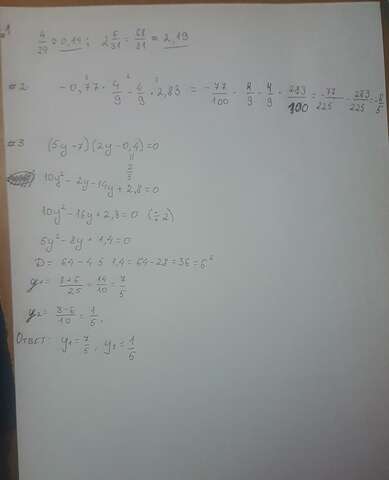 #1
4/29 ≈ 0,14; 2 6/31 = 68/31 ≈ 2,19
#2 -0,77 · 4/9 - 4/9 · 2,83 = -77/100 · 4/9 - 4/9 · 283/100 = -77/225 - 283/225 = -8/5
#3 (5y-7)(2y-0,4)=0
2/5
10y² - 2y - 14y + 2,8 = 0
10y² - 16y + 2,8 = 0 (÷2)
5y² - 8y + 1,4 = 0
D = 64 - 4·5·1,4 = 64 - 28 = 36 = 6²
y1 = 8+6/25 = 14/10 = 7/5
y2 = 8-6/10 = 1/5.
Ответ: y1 = 7/5, y2 = 1/5